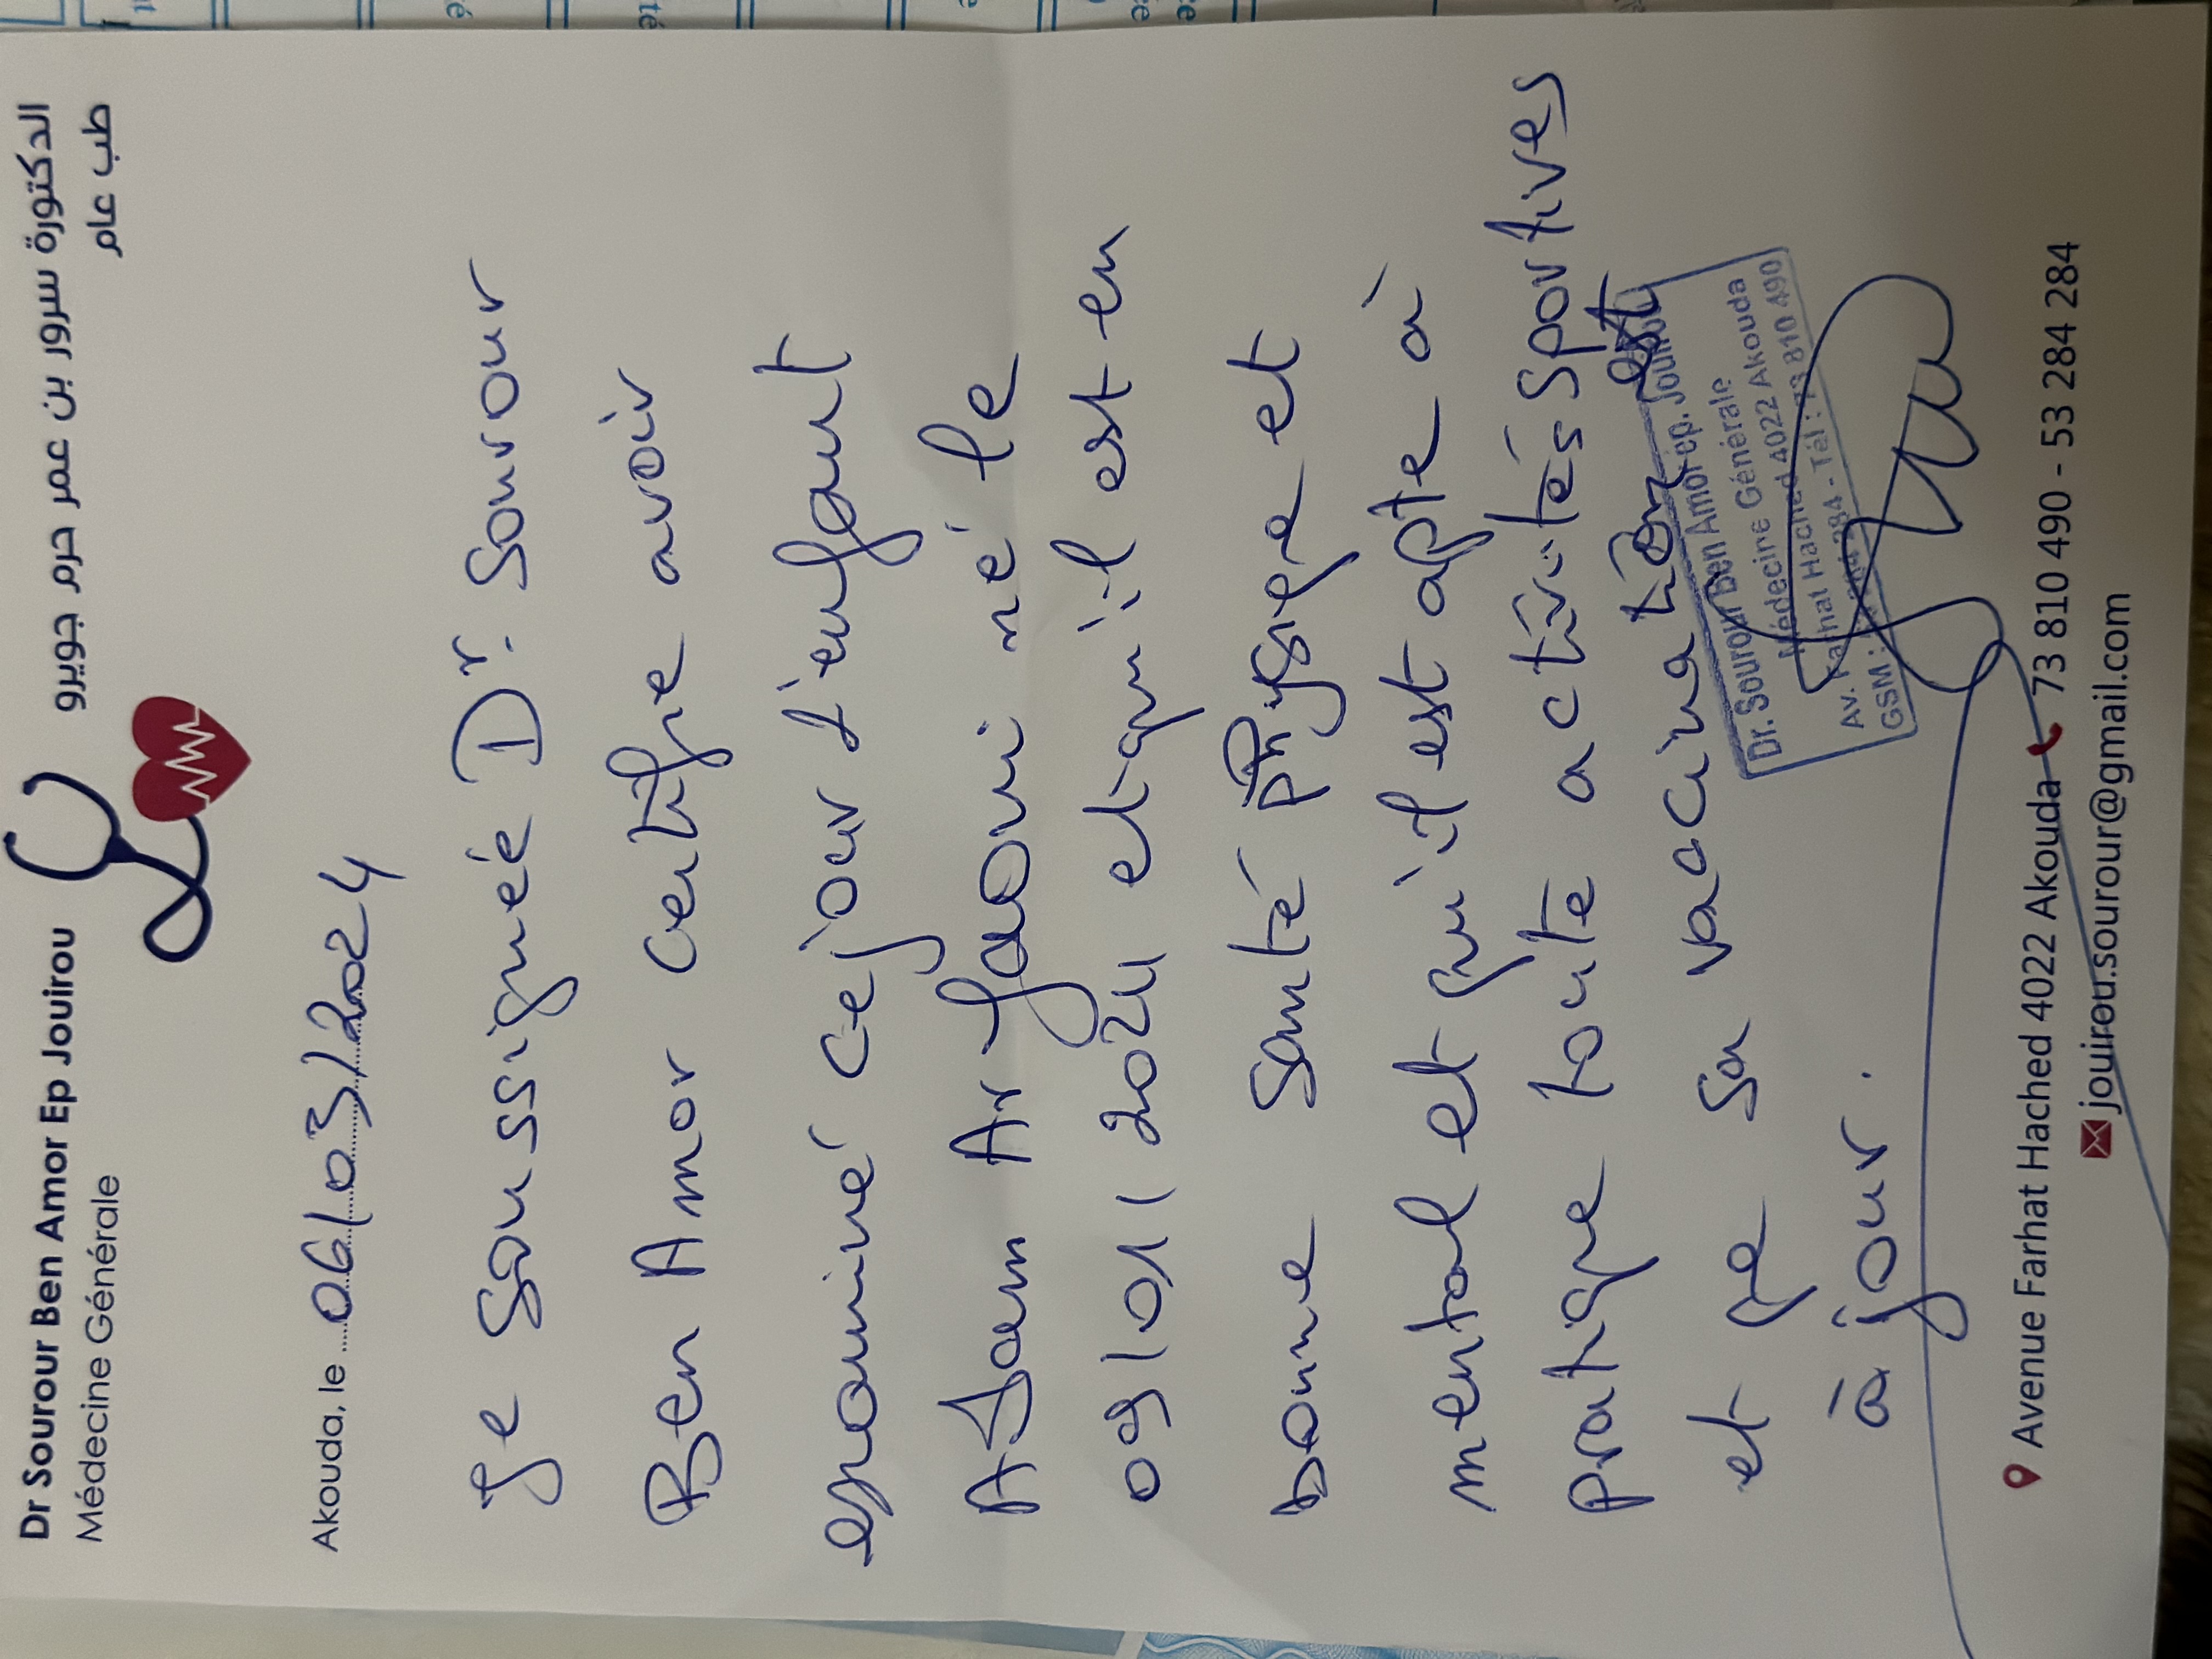 Dr Sourour Ben Amor Ep Jouirou
Médecine Générale
الدكتورة سرور بن عمر حرم جويرو
طب عام
Akouda, le 06/03/2024
Je soussignée Dr. Sourour
Ben Amor certifie avoir
examiné ce jour l'enfant
Adam Arfaoui né le
09/01/2021 et qu'il est en
bonne santé physique et
mental et qu'il est apte à
pratique toute activités sportives
et que sa vaccination est
à jour.
Dr. Sourour Ben Amor ép. Jouirou
Médecine Générale
Av. Farhat Hached 4022 Akouda
GSM: 284 - Tél : 73 810 490
Avenue Farhat Hached 4022 Akouda 73 810 490 - 53 284 284
jouirou.sourour@gmail.com